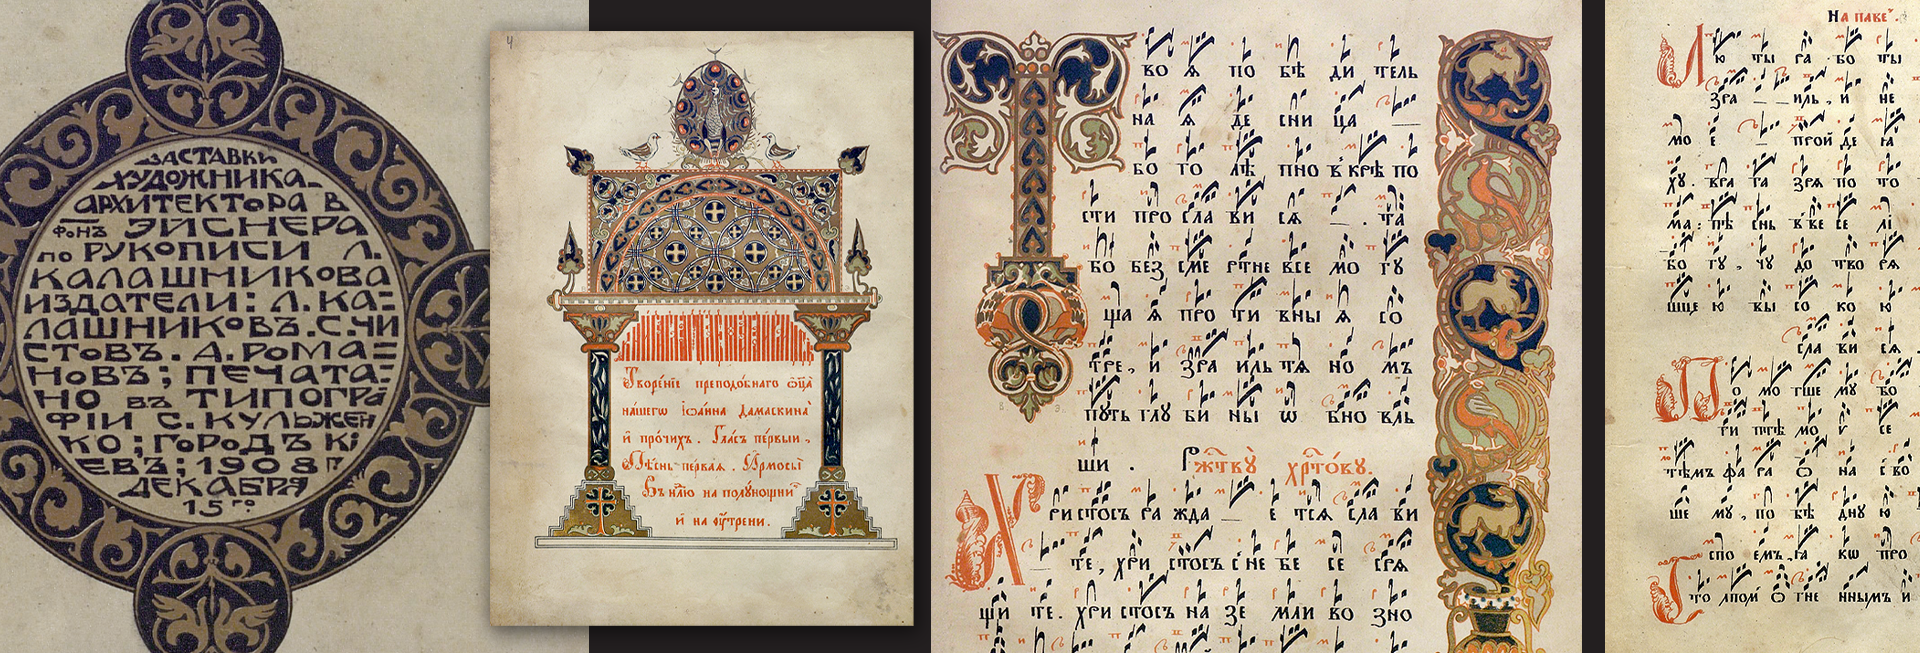 ЗАСТАВКИ
ХУДОЖНИКА
АРХИТЕКТОРА В
ФОНЪ ЭЙСНЕРА
ПО РУКОПИСИ Л.
КАЛАШНИКОВА
ИЗДАТЕЛИ: Л. КА=
ЛАШНИКОВЪ. С. ЧИ
СТОВЪ. А. РОМА=
НОВЪ; ПЕЧАТА=
НО ВЪ ТИПОГРА
ФІИ С. КУЛЬЖЕН
КО; ГОРОДЪ КІ
ЕВЪ; 1908 Г
ДЕКАБРЯ
15ГО
Творе́нїе преподо́бнаго ѻ҆ц҃а̀
на́шегѡ і҆ѡа́нна дамаскина̀
и҆ про́чихъ. Гла́съ пе́рвыи.
Пѣ́снь пе́рваѧ. І҆рмосы̀
и҆ на ѹ҆́трени.
ВО Ѧ ПО БѢ ДИ ТЕЛЬ
НА Ѧ ДЕ СНИ ЦА
БО ГО ЛѢ ПНО В КРѢ ПО
СТИ ПРО СЛА ВИ СѦ . ТА
БО БЕЗ СМЕ РТНЕ ВСЕ МО ГУ
ЩА Ѧ ПРО ТИ ВНЫ Ѧ СО
ТРЕ, И ЗРА ИЛЬ ТѦ НО МЪ
ПУТЬ ГЛУ БИ НЫ Ѡ БНО ВЛЬ
ШИ . Рж҃твꙋ̀ хр҃то́вꙋ.
ХРИСТОСЪ РА ЖДА Е ТСѦ СЛА ВИ
ТЕ, ХРИ СТОСЪ С НЕ БЕ СЕ СРѦ
ЩИ ТЕ. ХРИ СТОСЪ НА ЗЕ МЛИ ВО ЗНО
На паве
Ю ТЫ РА БО ТЫ
ЗРА ИЛЬ, И НЕ
МО Е ПРОЙ ДЕ
ХУ. ВРА ТА ЗРѦ ПО ТО
МА: ПѢ СНЬ В ВЕ СЕ ЛІ
БО ГУ, ЧУ ДО ТВО РѦ
ЩЕ Ю ВЫ СО КО Ю
СЛА ВИ СѦ
ПО МО ГШЕ МУ БО
ТѢМЪ ФА РА Ѻ НА С ВО
ШЕ МУ, ПО БѢ ДНУ Ю